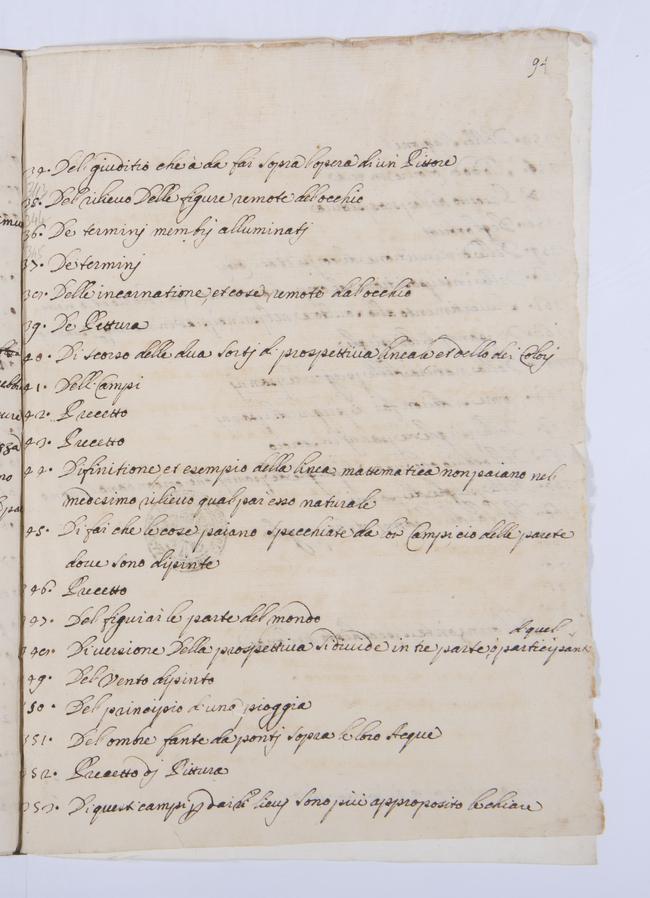 94
34. Del giuditio che à da far sopra l'opera di un Pittore
35. Del rilievo Delle figure remote dal occhio
36. De terminj membrj alluminatj
37. De terminj
38. Delle incarnatione, et cose remote dal occhio
39. De Pittura
40. Discorso delle dua sortj di prospettiva lineare et dello de Colorj
41. Dell Campi
42. Precetto
43. Precetto
44. Difinitione et esempio della linea mattematica non paiano nel
medesimo rilievo qual par esso naturale
45. Di far che le cose paiano specchiate da lor Campi cio delle parete
dove sono dipinte
146. Precetto
147. Del figurar le parte del mondo
di quel
148. Diversione Della prospettiva si divide in tre parte o participant
149. Del Vento dipinto
150. Del principio d'una pioggia
151. Del ombre fante da pontj sopra le loro Acque
152. Precetto dj Pittura
153. Di quest campi sono più approposito le chiare